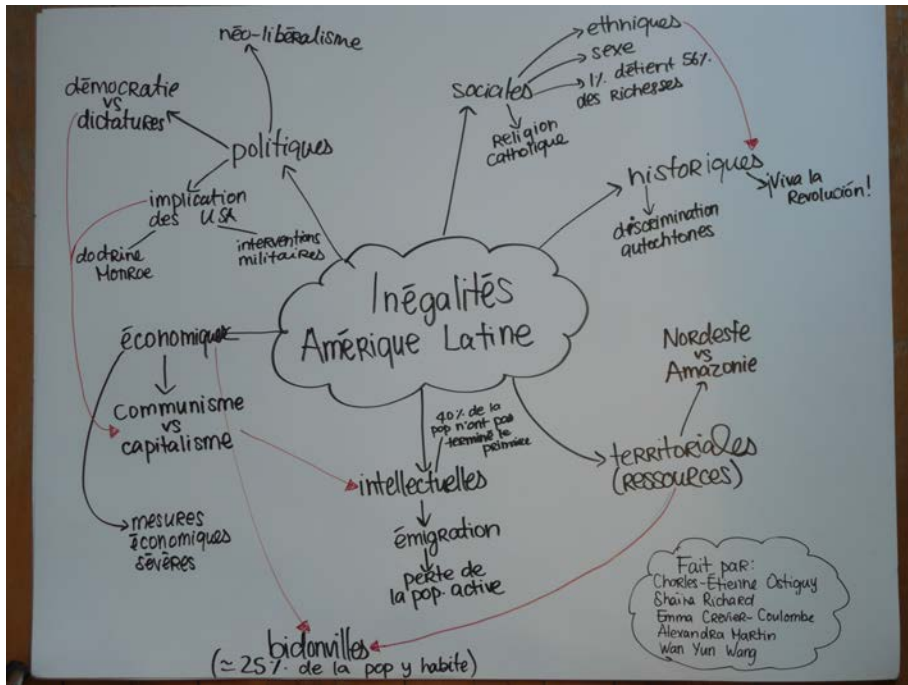 néo-libéralisme
démocratie
vs
dictatures
politiques
implication
des USA
doctrine
Monroe
interventions
militaires
sociales
ethniques
sexe
1% détient 56%
des richesses
religion
catholique
historiques
¡Viva la
Revolución!
discrimination
autochtones
Inégalités
Amérique Latine
économiques
communisme
vs
capitalisme
mesures
économiques
sévères
40% de la
pop n'ont pas
terminé le
primaire
intellectuelles
émigration
perte de
la pop. active
Nordeste
vs
Amazonie
territoriales
(ressources)
bidonvilles
(≈25% de la pop y habite)
Fait par:
Charles-Étienne Ostiguy
Shaina Richard
Emma Crevier-Coulombe
Alexandra Martin
Wan Yun Wang